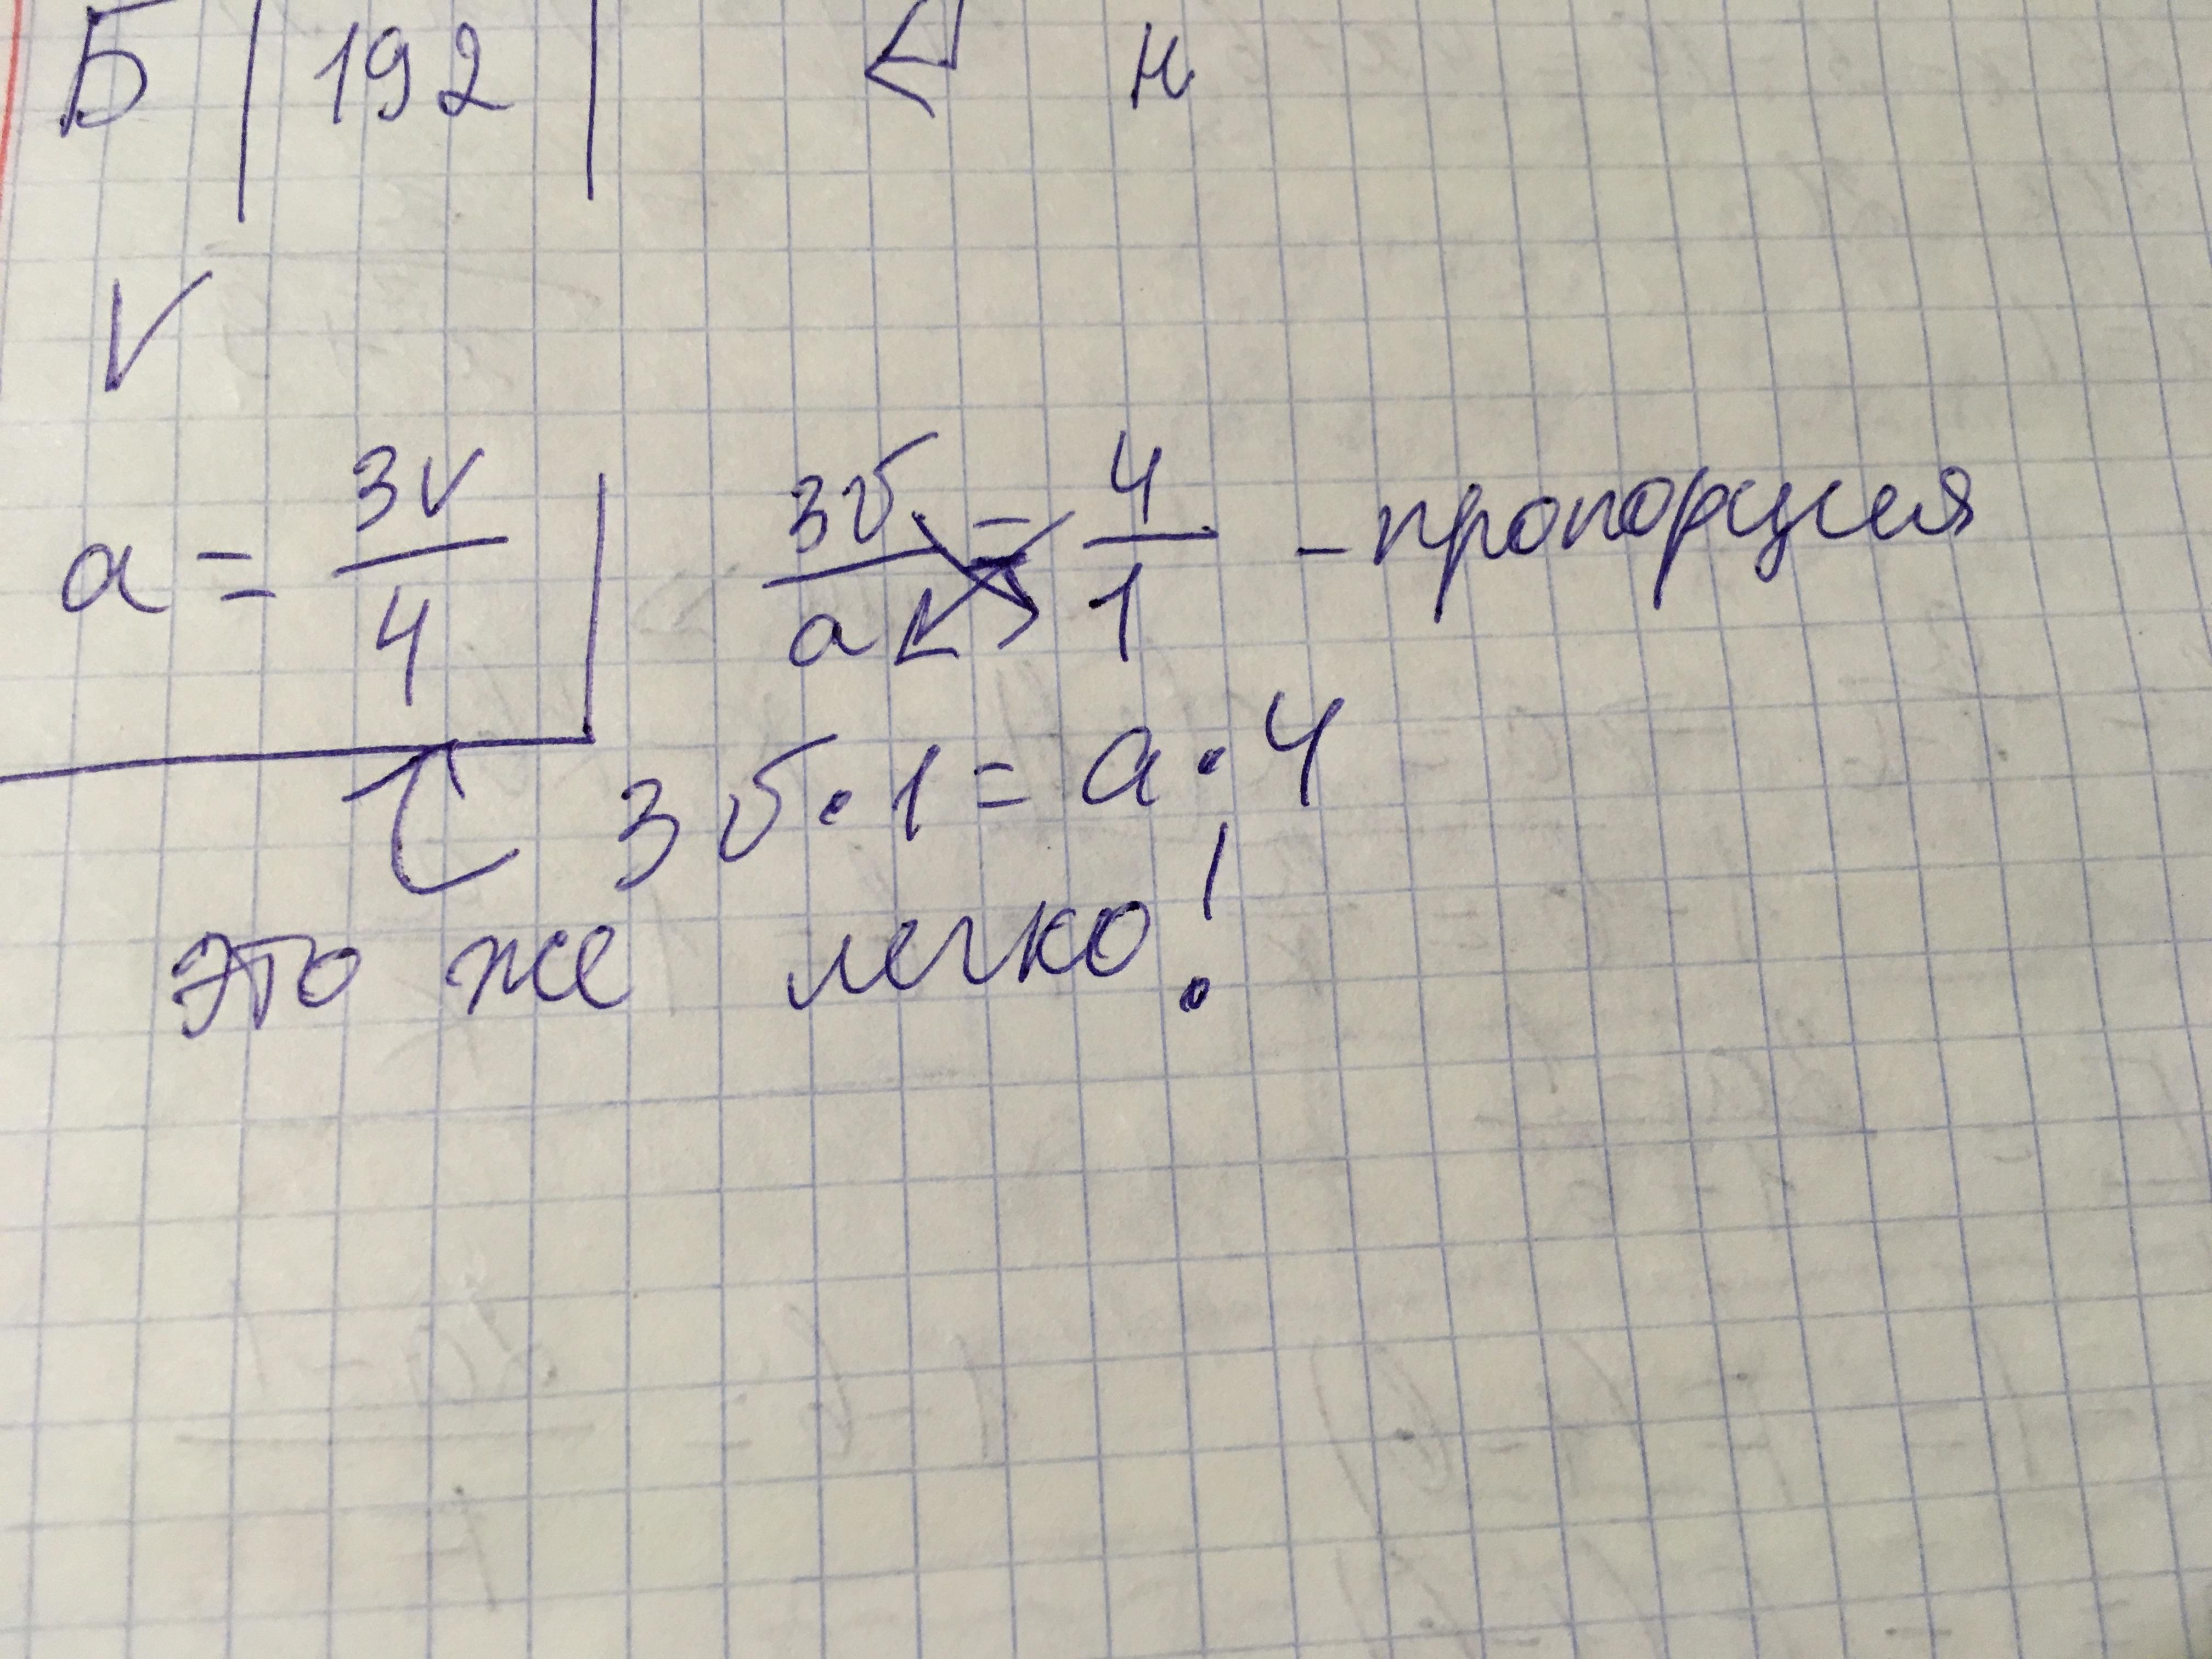 Б | 192 | н
V
a = 3V/4 3V/a = 4/1 - пропорция
3V · 1 = a · 4
это же легко!